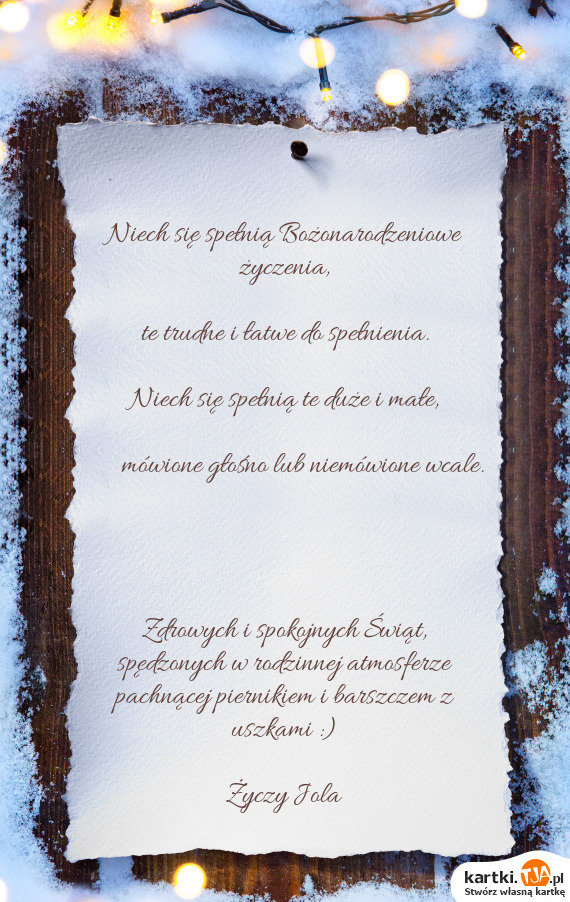 Niech się spełnią Bożonarodzeniowe
życzenia,
te trudne i łatwe do spełnienia.
Niech się spełnią te duże i małe,
mówione głośno lub niemówione wcale.
Zdrowych i spokojnych Świąt,
spędzonych w rodzinnej atmosferze
pachnącej piernikiem i barszczem z
uszkami :)
Życzy Jola
kartki.TJA.pl
Stwórz własną kartkę